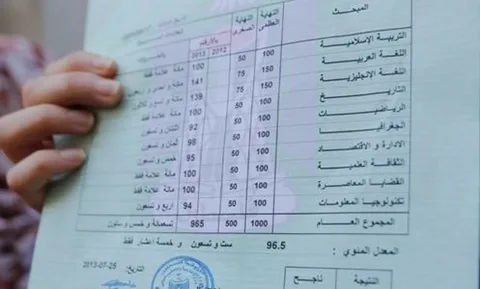 المبحث النهاية العظمى النهاية الصغرى بالأرقام
2012 2013
التربية الإسلامية 100 50 100 مائة علامة فقط
اللغة العربية 150 75 141 مائة و احدى و اربعون
اللغة الإنجليزية 150 75 139 مائة و تسع و ثلاثون
التاريخ 100 50 100 مائة علامة فقط
الرياضيات 100 50 92 اثنتان و تسعون
الجغرافيا 100 50 98 ثمان و تسعون
الادارة و الاقتصاد 100 50 95 خمس و تسعون
الثقافة العلمية 100 50 100 مائة علامة فقط
القضايا المعاصرة 100 50 100 مائة علامة فقط
تكنولوجيا المعلومات 100 50 94 اربع و تسعون
المجموع العام 1000 500 965 تسعمائة و خمس و ستون
المعدل المئوي : 96.5 ست و تسعون و خمسة اعشار فقط
النتيجة ناجح
التاريخ: 2013-07-25